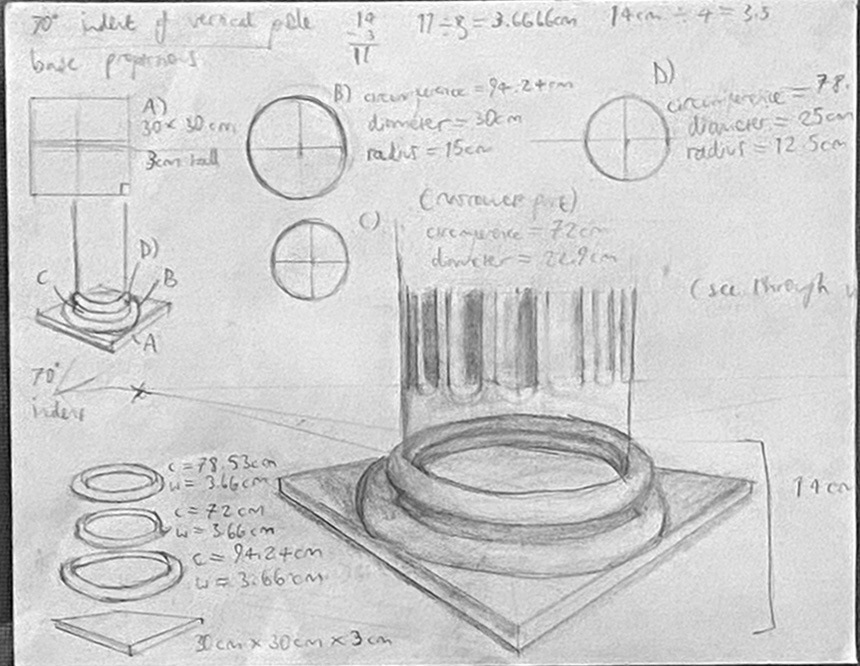 70° indent of vertical pole
base proportions
14
- 3
11
11 ÷ 3 = 3.6666cm
14cm ÷ 4 = 3.5
A)
30 x 30 cm
3cm tall
B) circumference = 94.24cm
diameter = 30cm
radius = 15cm
D)
circumference = 78.
diameter = 25cm
radius = 12.5cm
C)
(narrower part)
circumference = 72cm
diameter = 22.9cm
D)
C
B
A
(see through
70°
indent
c = 78.53cm
w = 3.66cm
c = 72cm
w = 3.66cm
c = 94.24cm
w = 3.66cm
30cm x 30cm x 3cm
14cm